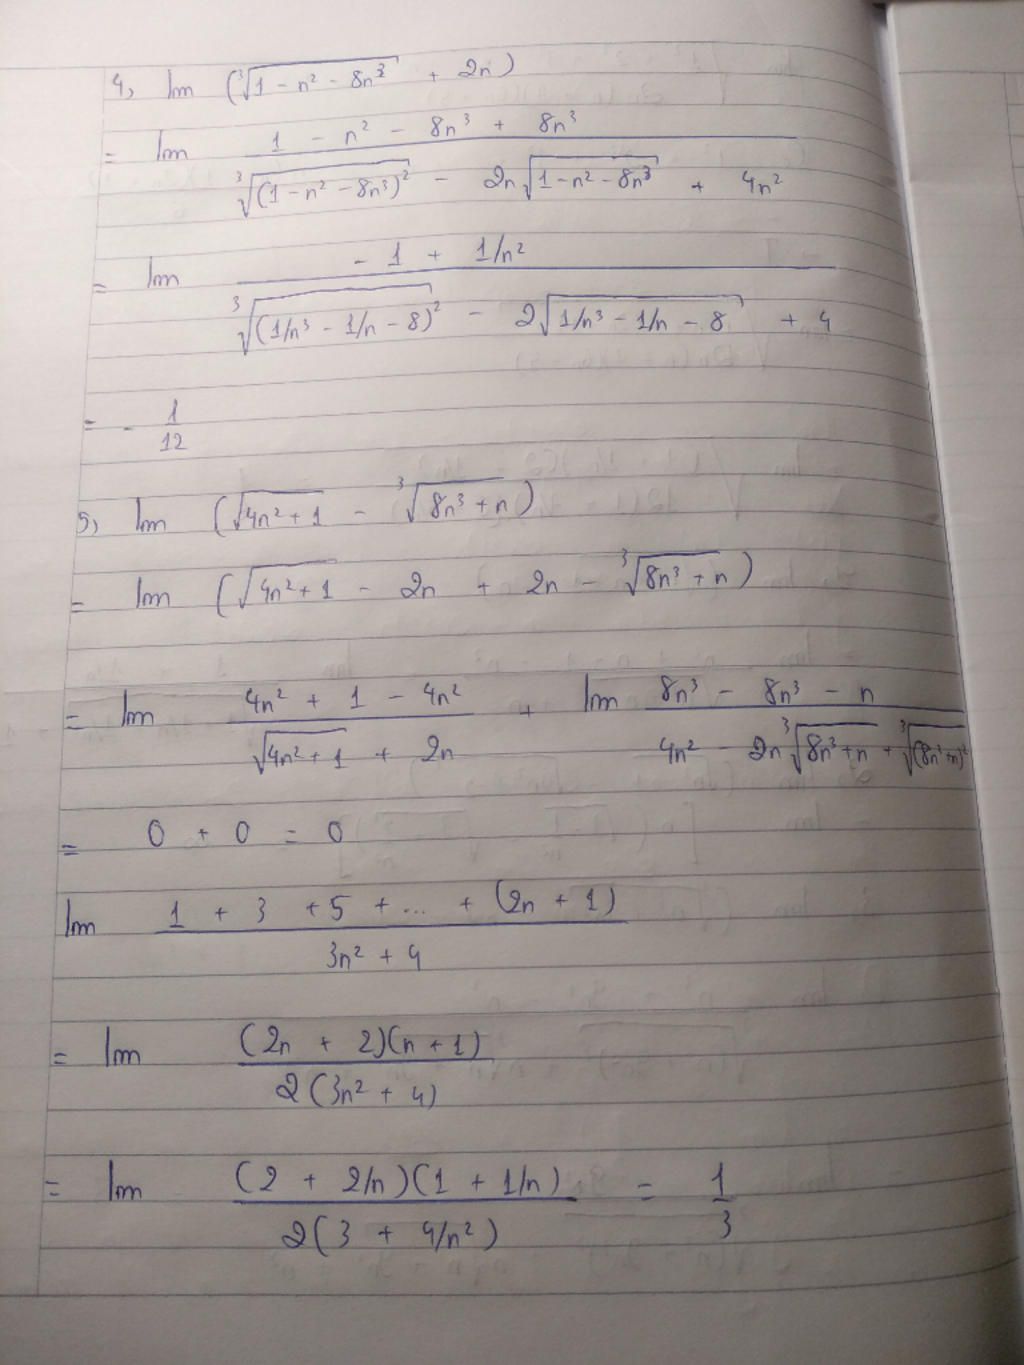 4, lim (∛(1 - n² - 8n³) + 2n)
= lim (1 - n² - 8n³ + 8n³) / (∛((1 - n² - 8n³)²) - 2n√(1 - n² - 8n³) + 4n²)
= lim (- 1 + 1/n²) / (∛((1/n³ - 1/n - 8)²) - 2√(1/n³ - 1/n - 8) + 4)
= - 1/12
5, lim (√(4n² + 1) - ∛(8n³ + n))
= lim (√(4n² + 1) - 2n + 2n - ∛(8n³ + n))
= lim (4n² + 1 - 4n²) / (√(4n² + 1) + 2n) + lim (8n³ - 8n³ - n) / (4n² - 2n∛(8n³ + n) + ∛((8n³ + n)²))
= 0 + 0 = 0
lim (1 + 3 + 5 + ... + (2n + 1)) / (3n² + 4)
= lim ((2n + 2)(n + 1)) / (2(3n² + 4))
= lim ((2 + 2/n)(1 + 1/n)) / (2(3 + 4/n²)) = 1/3